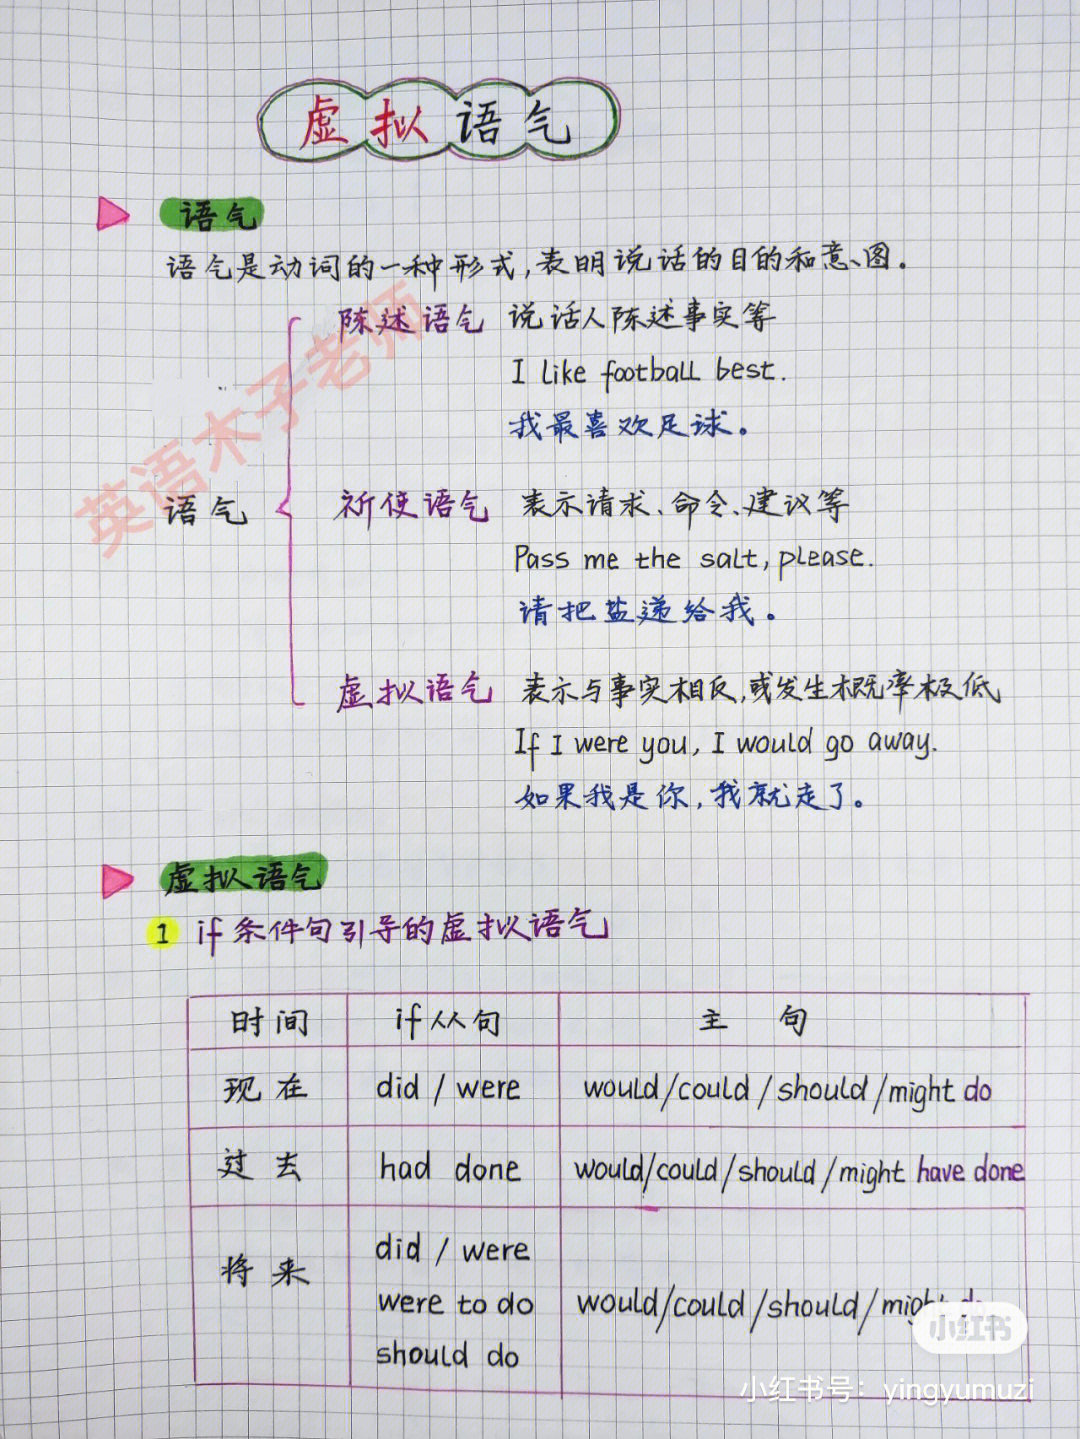 虚拟语气
语气
语气是动词的一种形式,表明说话的目的和意图。
陈述语气 说话人陈述事实等
I like football best.
我最喜欢足球。
语气
祈使语气 表示请求、命令、建议等
Pass me the salt, please.
请把盐递给我。
虚拟语气 表示与事实相反,或发生概率极低
If I were you, I would go away.
如果我是你,我就走了。
英语木子老师
虚拟语气
1 if条件句引导的虚拟语气
时间 if从句 主句
现在 did / were would/could/should/might do
过去 had done would/could/should/might have done
将来 did / were
were to do would/could/should/might do
should do
小红书
小红书号：yingyumuzi